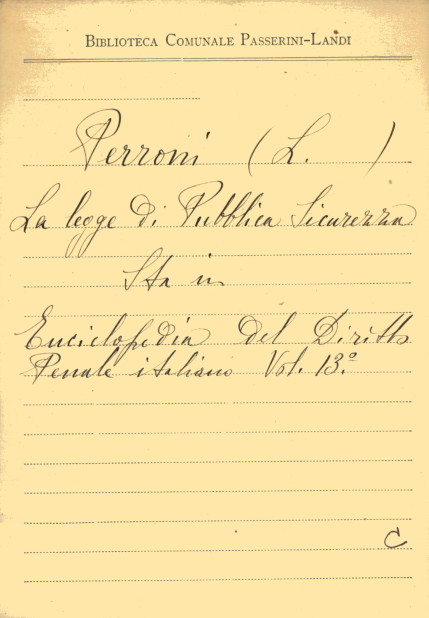 BIBLIOTECA COMUNALE PASSERINI-LANDI
Perroni (L. )
La legge di Pubblica Sicurezza
Sta in
Enciclopedia del Diritto
Penale italiano Vol. 13.º
C